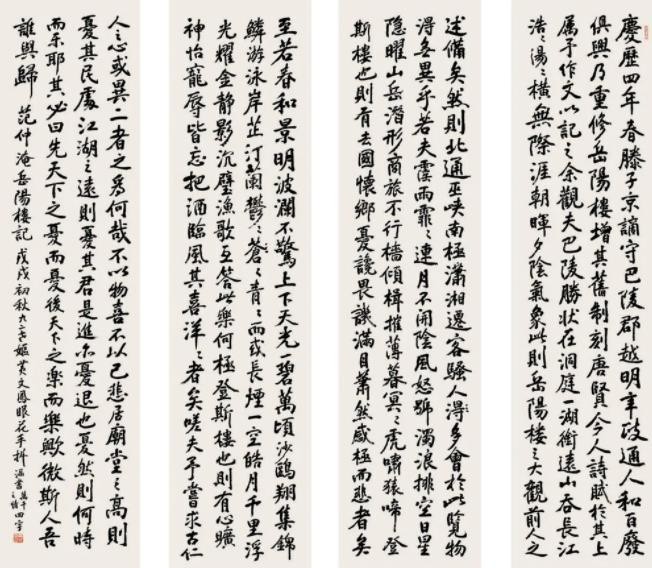 慶歷四年春滕子京謫守巴陵郡越明年政通人和百廢
俱興乃重修岳陽樓增其舊制刻唐賢今人詩賦於其上
屬予作文以記之余觀夫巴陵勝狀在洞庭一湖銜遠山吞長江
浩〻湯〻橫無際涯朝暉夕陰氣象此則岳陽樓之大觀前人之
述備矣然則北通巫峽南極瀟湘遷客騷人得多會於此覽物
得無異乎若夫霪雨霏〻連月不開陰風怒號濁浪排空日星
隱曜山岳潛形商旅不行檣傾楫摧薄暮冥〻虎嘯猿啼登
斯樓也則有去國懷鄉憂讒畏譏滿目蕭然感極而悲者矣
至若春和景明波瀾不驚上下天光一碧萬頃沙鷗翔集錦
鱗游泳岸芷汀蘭鬱〻蒼〻青〻而或長煙一空皓月千里浮
光耀金靜影沉璧漁歌互答此樂何極登斯樓也則有心曠
神怡寵辱皆忘把酒臨風其喜洋〻者矣嗟夫予嘗求古仁
人之心或異二者之為何哉不以物喜不以己悲居廟堂之高則
憂其民處江湖之遠則憂其君是進亦憂退也憂然則何時
而樂耶其必曰先天下之憂而憂後天下之樂而樂歟微斯人吾
誰與歸 范仲淹岳陽樓記 戊戌初秋九十老嫗黃文鳳眼花手抖